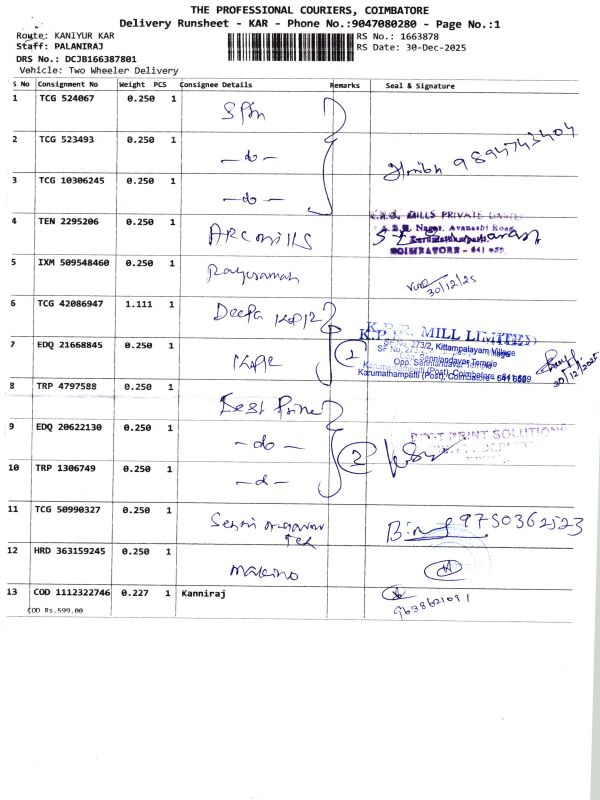 THE PROFESSIONAL COURIERS, COIMBATORE
Delivery Runsheet - KAR - Phone No.:9047080280 - Page No.:1
Route: KANIYUR KAR
RS No.: 1663878
Staff: PALANIRAJ
RS Date: 30-Dec-2025
DRS No.: DCJB166387801
Vehicle: Two Wheeler Delivery
S No Consignment No Weight PCS Consignee Details Remarks Seal & Signature
1 TCG 524067 0.250 1
2 TCG 523493 0.250 1 -do-
9894743404
3 TCG 10306245 0.250 1 -do-
K.P.R. MILLS PRIVATE LIMITED
4 TEN 2295206 0.250 1
Nagar, Avanashi Road
COIMBATORE - 641 659
5 IXM 509548460 0.250 1
30/12/25
6 TCG 42086947 1.111 1 Deepa KPR2
K.P.R. MILL LIMITED
7 EDQ 21668845 0.250 1 KPR2 1
SF No. 273/2, Kittampalayam Village
Opp. Sennandavar Temple
Karumathampatti (Post), Coimbatore - 641 659
30/12/2025
8 TRP 4797588 0.250 1 Best Print
9 EDQ 20622130 0.250 1 -do- 2
PRINT SOLUTIONS
10 TRP 1306749 0.250 1 -d-
11 TCG 50990327 0.250 1
9750362523
12 HRD 363159245 0.250 1 makino
13 COD 1112322746 0.227 1 Kanniraj
9638621091
COD Rs.599.00